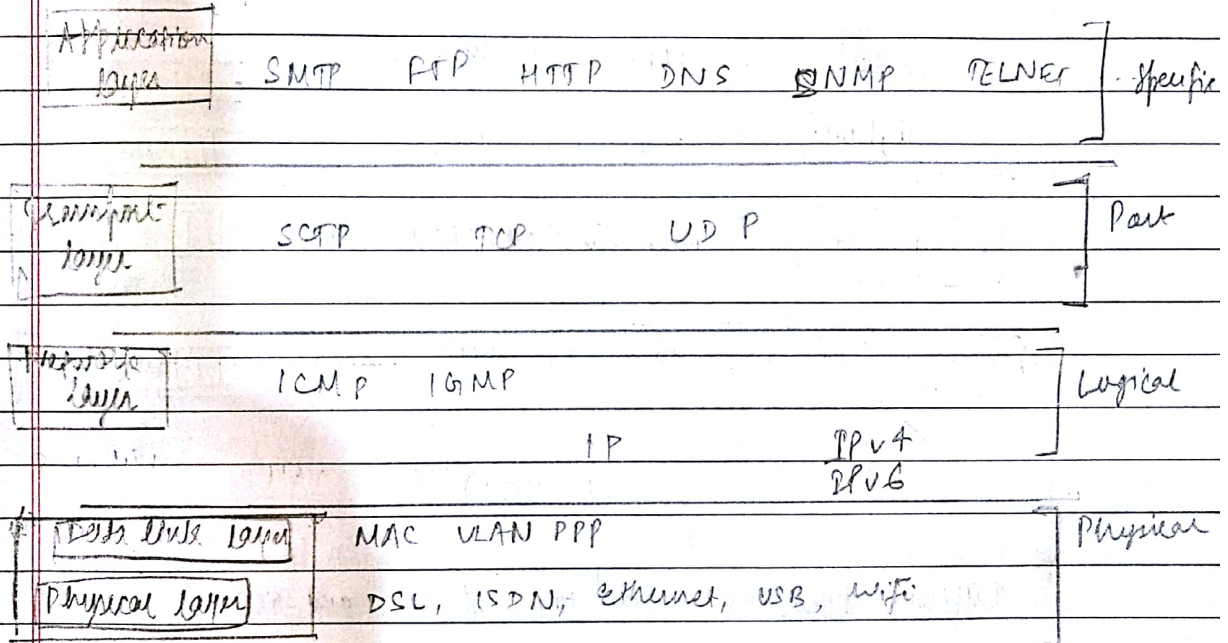 Application
layer
SMTP FTP HTTP DNS SNMP TELNET
Specific
Transport
layer
SCTP TCP UDP
Port
layer
ICMP IGMP
Logical
IP
IPv4
IPv6
Data link layer
MAC VLAN PPP
Physical
Physical layer
DSL, ISDN, Ethernet, USB, Wifi